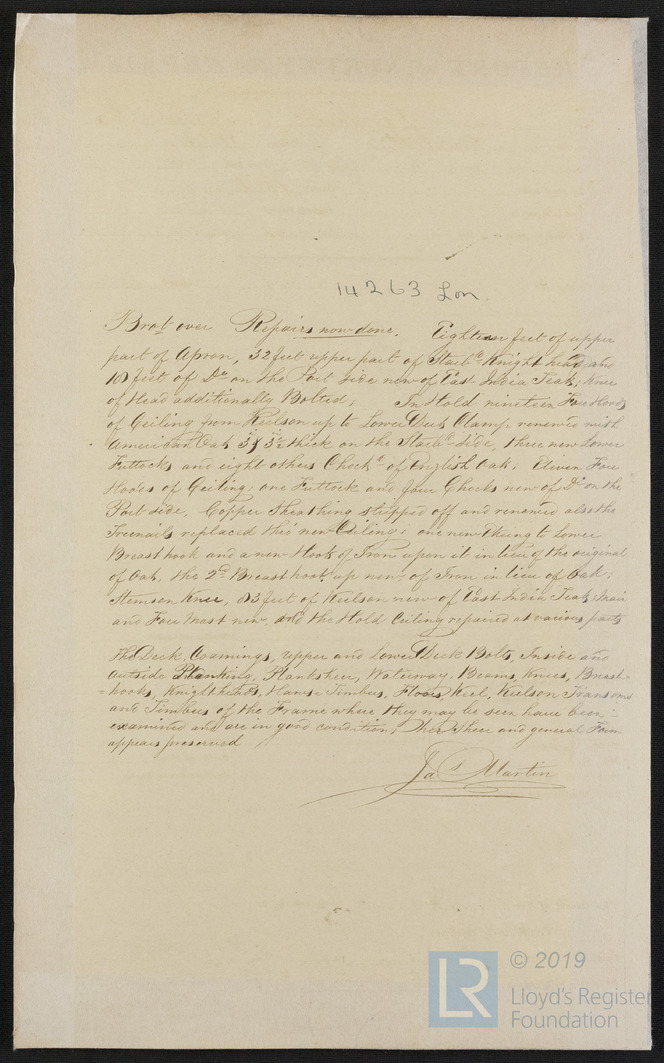 14263 Lon.
Brot over Repairs now done. Eighteen feet of upper
part of Apron, 32 feet upper part of Starbd Knight head and
18 feet of Do on the Port side new of East India Teak; Knee
of Head additionally Bolted; In Hold nineteen Fore Hoods
of Ceiling from Keelson up to Lower Deck Clamp renewed with
American Oak 3 & 3½ thick on the Starbd side, three new Lower
Futtocks and eight others Chockd of English Oak; Eleven Fore
Hoods of Ceiling; one Futtock and four Chocks new of Do on the
Port side, Copper Sheathing stripped off and renewed also the
Treenails replaced thro' new Ceiling; one new to Lower
Breasthook and a new Hook of Iron upon it in lieu of the original
of Oak, the 2nd Breasthook up new of Iron in lieu of Oak;
Stemson Knee, 83 feet of Keelson new of East India Teak; Main
and Fore Mast new, and the Hold Ceiling repaired at various parts
The Deck, Comings, Upper and Lower Deck Bolts, Inside and
Outside Planking, Planksheer, Waterway, Beams, Knees, Breast-
=hooks, Knightheads, Hawse Timbers, Floors, Keel, Keelson Transoms
and Timbers of the Frame where they may be seen have been
examined and are in good condition; Her Sheer and general Form
appears preserved
Jas Martin
© 2019
LR
Lloyd's Register
Foundation